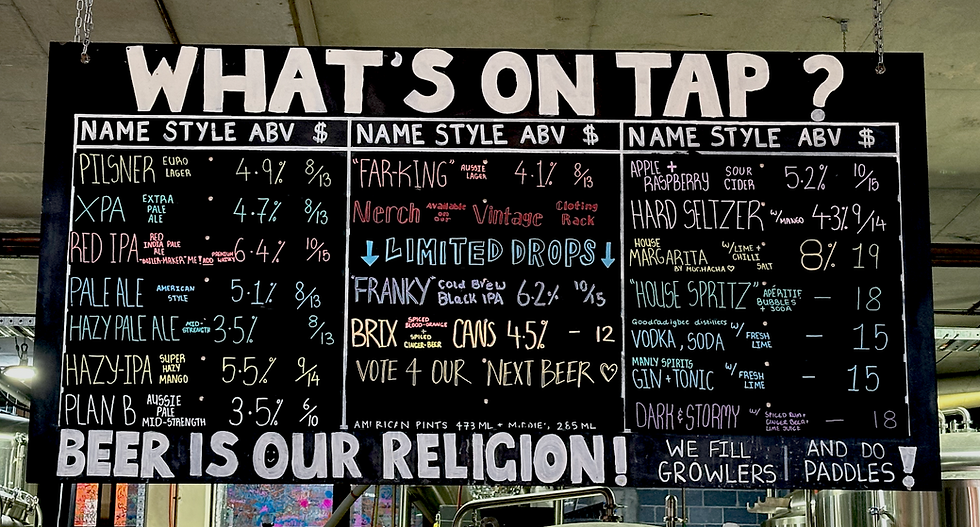 WHAT'S ON TAP?
NAME STYLE ABV $
PILSNER EURO LAGER 4.9% 8/13
XPA EXTRA PALE ALE 4.7% 8/13
RED IPA RED INDIA PALE ALE "BOILER-MAKER" ME! ADD PREMIUM WHISKY 6.4% 10/15
PALE ALE AMERICAN STYLE 5.1% 8/13
HAZY PALE ALE MID-STRENGTH 3.5% 8/13
HAZY-IPA SUPER HAZY MANGO 5.5% 9/14
PLAN B AUSSIE PALE MID-STRENGTH 3.5% 6/10
NAME STYLE ABV $
"FAR-KING" AUSSIE LAGER 4.1% 8/13
Nerch Available on our Vintage Clothing Rack
↓ LIMITED DROPS ↓
"FRANKY" Cold Brew Black IPA 6.2% 10/15
BRIX SPICED BLOOD-ORANGE + SPICED GINGER-BEER CANS 4.5% – 12
VOTE 4 OUR NEXT BEER ♡
AMERICAN PINTS 473 ML + MIDDIE', 285 ML
NAME STYLE ABV $
APPLE + RASPBERRY SOUR CIDER 5.2% 10/15
HARD SELTZER W/MANGO 4.3% 9/14
HOUSE MARGARITA BY MUCHACHA ♡ W/LIME + CHILLI SALT 8% 19
"HOUSE SPRITZ" APÉRITIF BUBBLES + SODA – 18
Goodradigbee distillers
VODKA, SODA W/ FRESH LIME – 15
MANLY SPIRITS
GIN + TONIC W/ FRESH LIME – 15
DARK & STORMY W/ SPICED RUM + GINGER BEER + LIME JUICE – 18
BEER IS OUR RELIGION!
WE FILL GROWLERS | AND DO PADDLES!